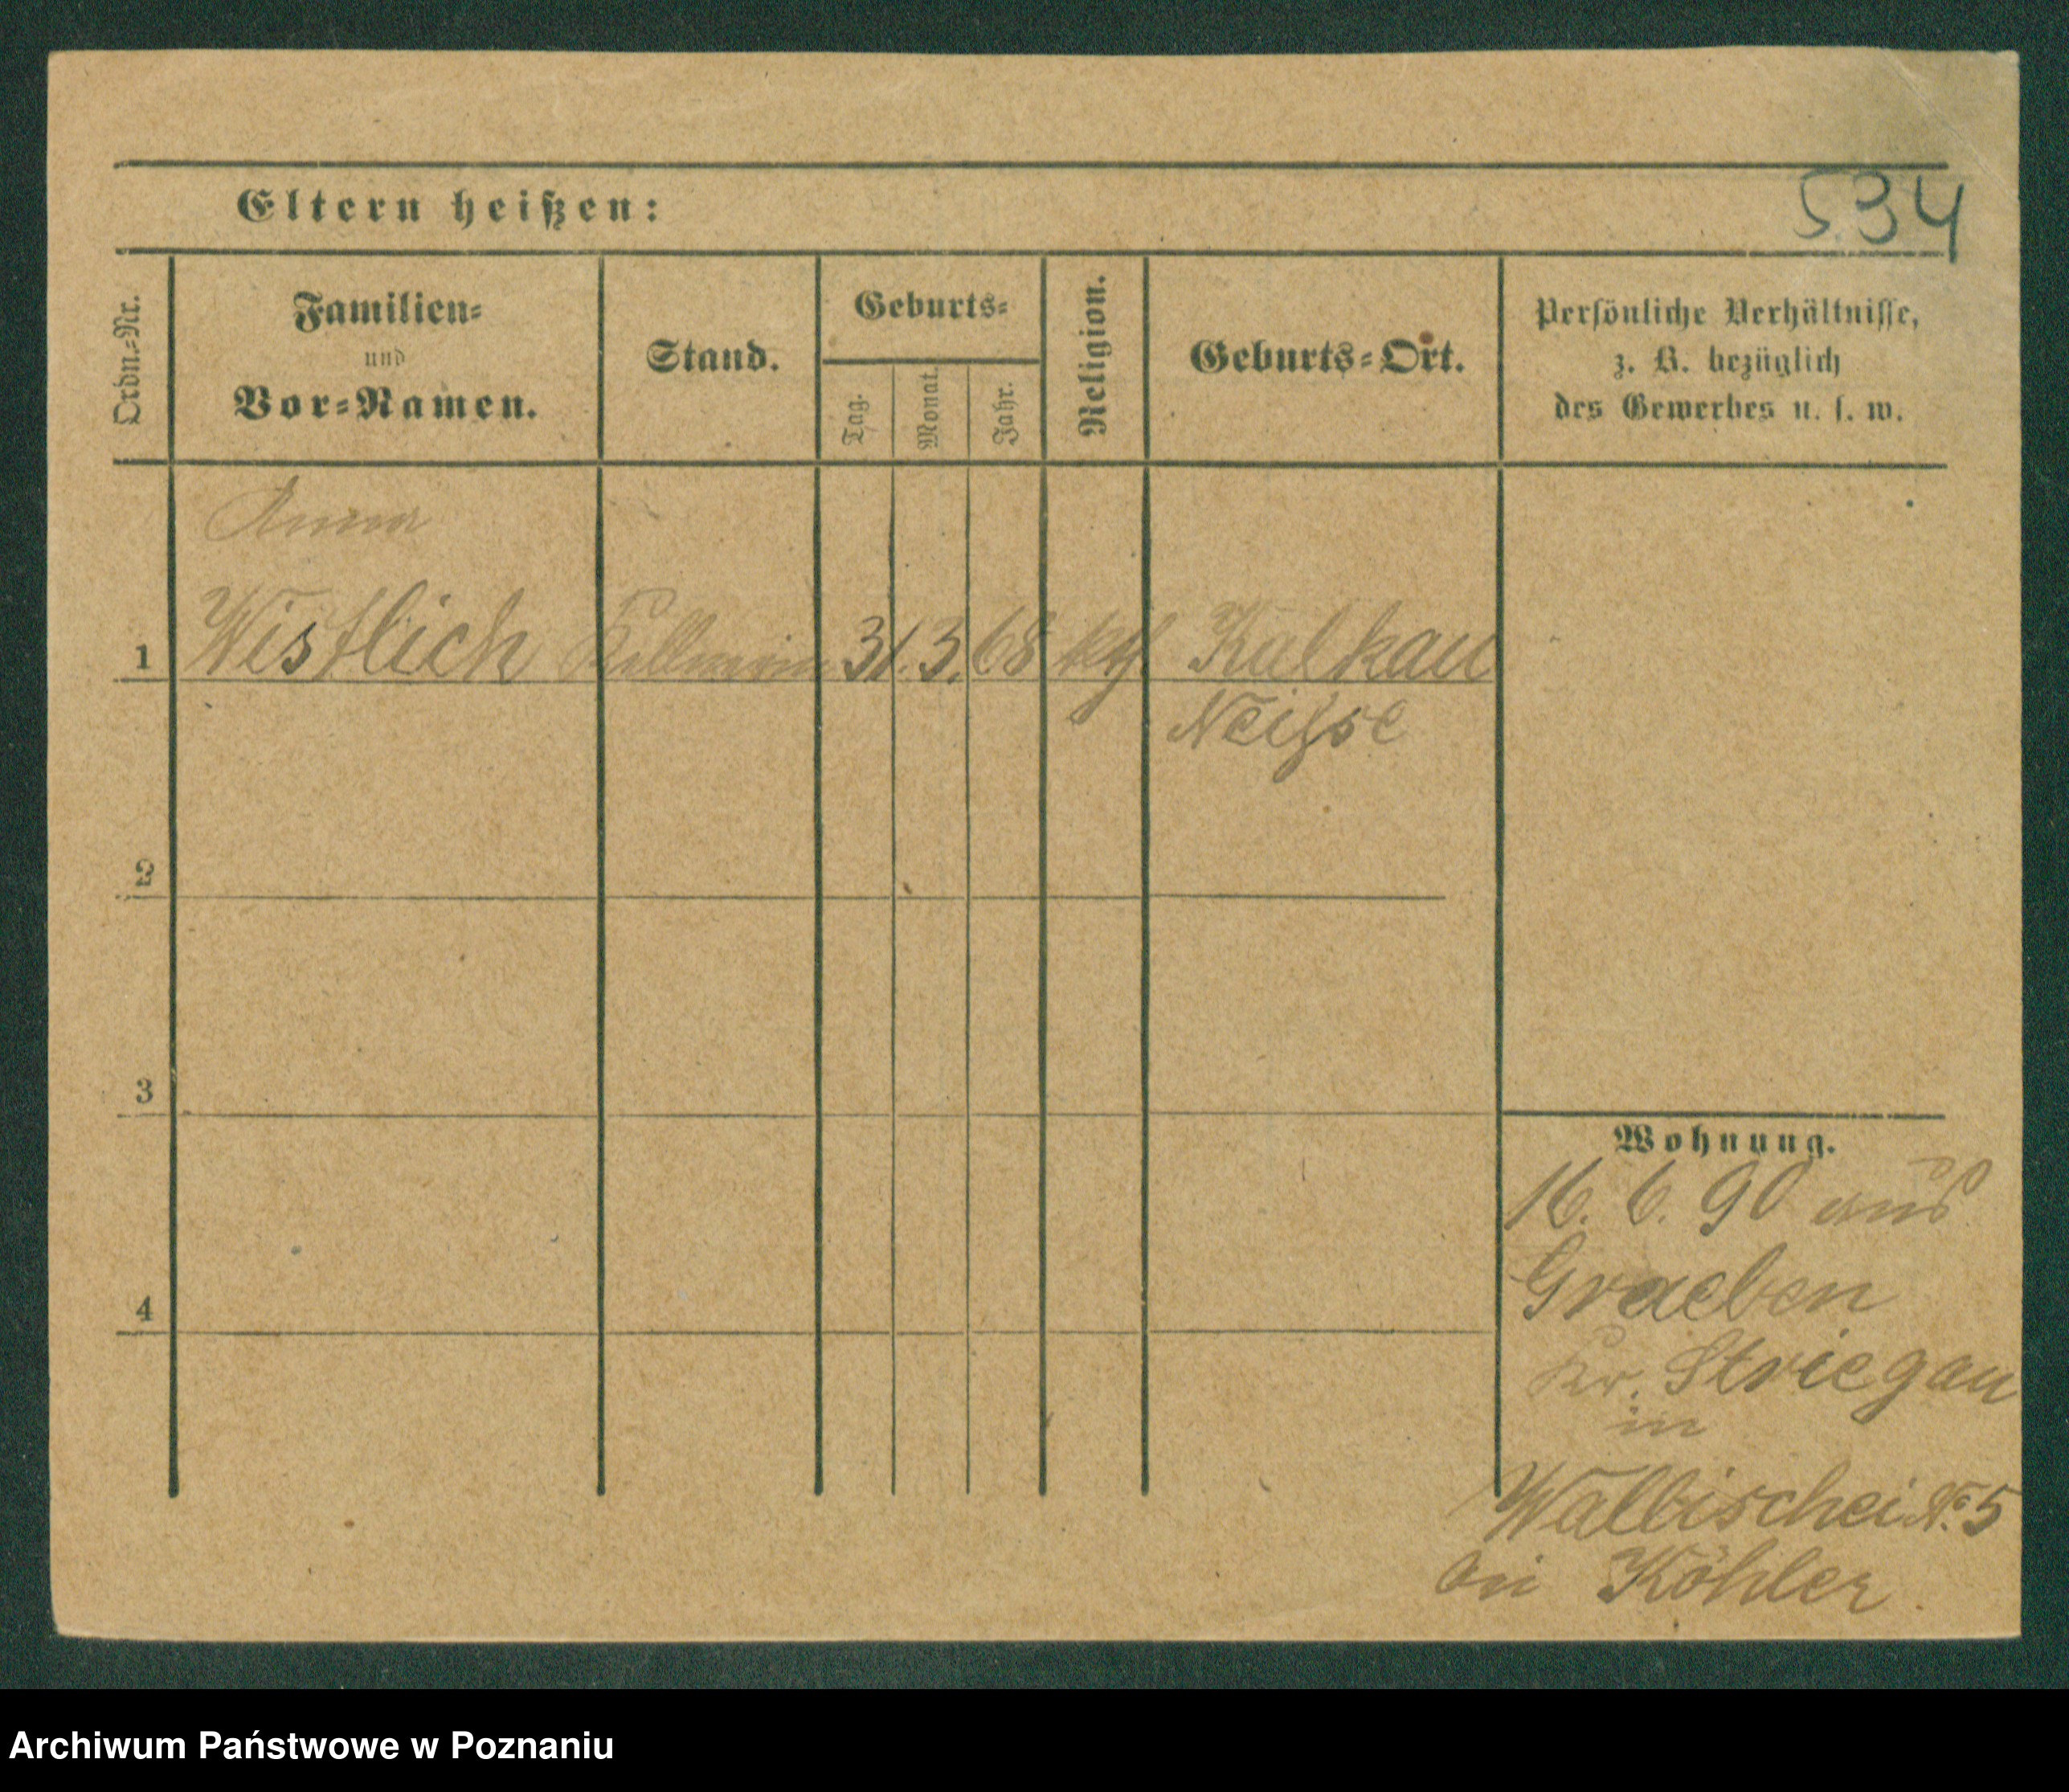 534
Eltern heißen:
Ordn.-Nr.
Familien-
und
Vor-Namen.
Stand.
Geburts-
Tag.
Monat.
Jahr.
Religion.
Geburts-Ort.
Persönliche Verhältnisse,
z. B. bezüglich
des Gewerbes u. s. w.
Anna
1 Wistlich Kellnerin 31. 3. 68 kth. Kalkau
Neisse
2
3
4
Wohnung.
16. 6. 90 aus
Graeben
Kr. Striegau
in
Wallischei No 5
bei Köhler.
Archiwum Państwowe w Poznaniu